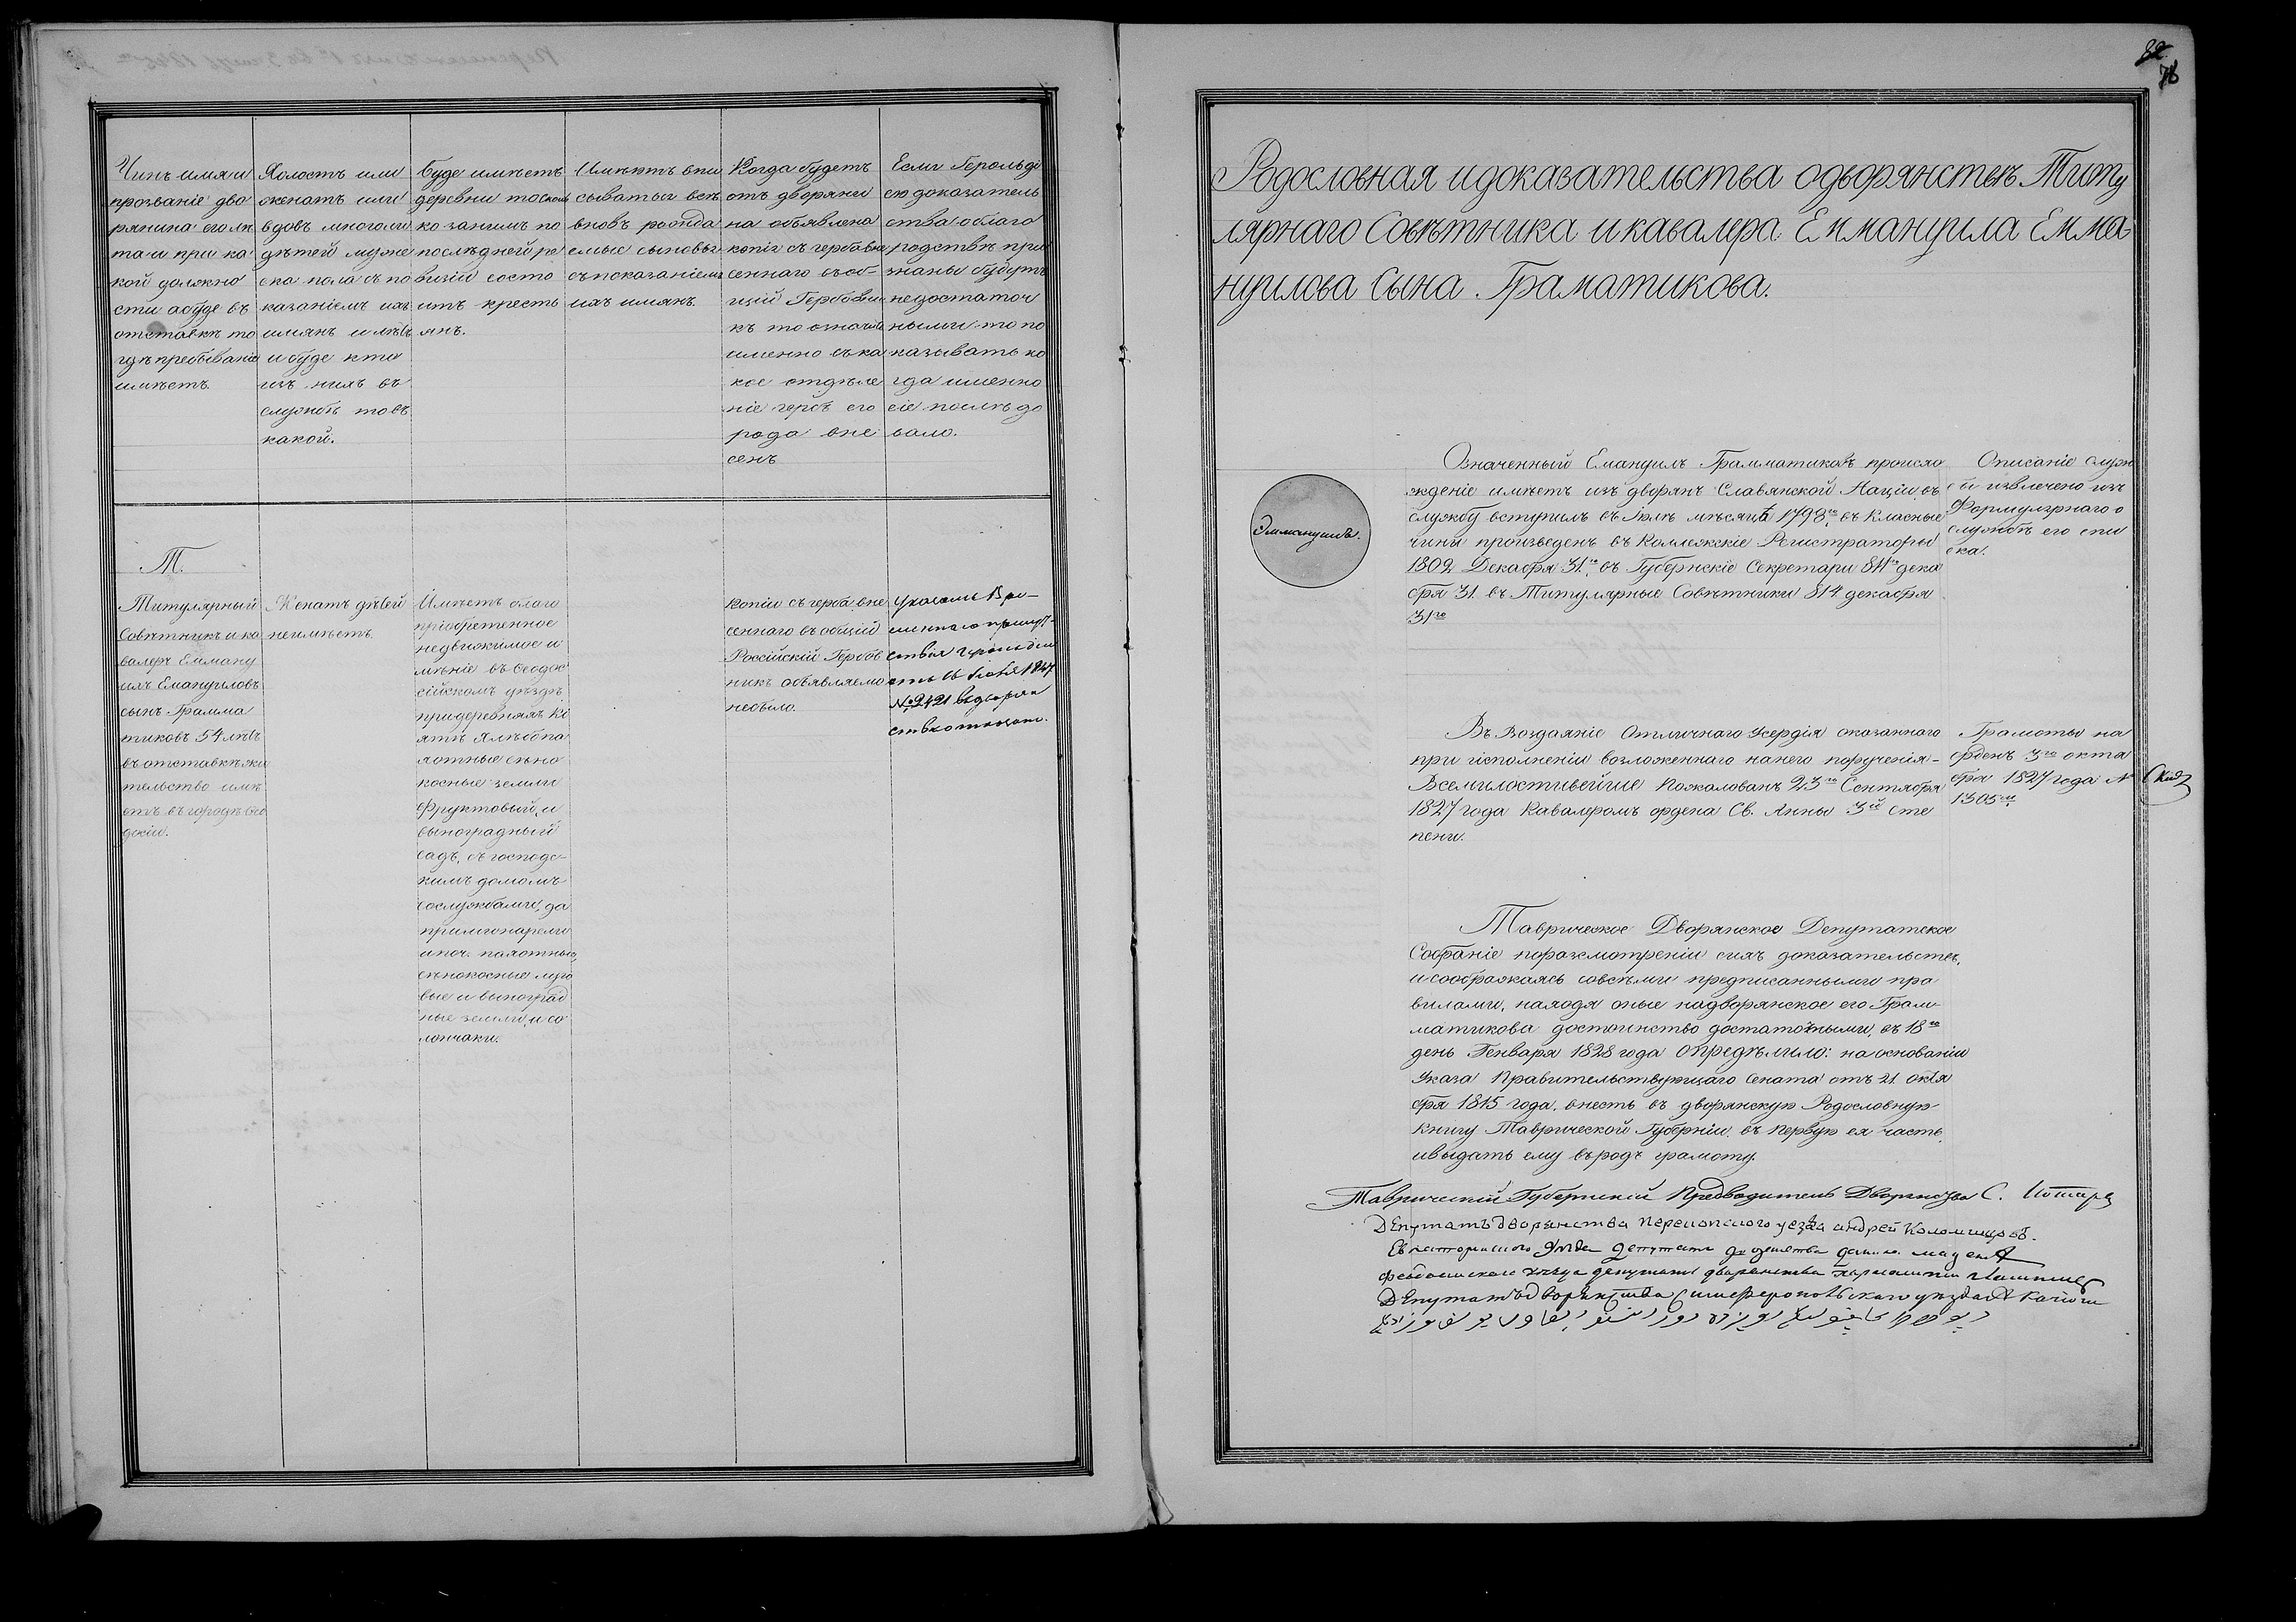 Чинъ имя и
прозваніе дво
рянина его лѣ
та и при ка
кой должно
сти а буде въ
отставкѣ то
гдѣ пребываніе
имѣетъ.
Холостъ или
женатъ или
вдовъ многоли
дѣтей муже
ска пола съ по
казаніемъ ихъ
имянъ и лѣтъ
и буде кто
изъ нихъ въ
службѣ то въ
какой.
Буде имѣетъ
деревни то сколь
ко за нимъ по
послѣдней ре
визіи состо
итъ кресть
янъ.
Имѣютъ впи
сыватьи всѣ
вновь рожда
емые сыновьи
съ показаніемъ
ихъ имянъ.
Когда будетъ
отъ дворяни
на объявлена
копія съ герба вне
сеннаго въ об-
щій Гербовни
къ то означить
именно въ ка
кое отдѣле
ніе гербъ его
рода вне
сенъ
Если Герольді
ею доказатель
ства о благо
родствѣ при
знаны будутъ
недостаточ
ными то по
казывать ко
гда именно
сіе послѣдо
вало.
Т.
Титулярный
Совѣтникъ и ка
валеръ Емману
илъ Емануиловъ
сынъ Грамма
тиковъ 54 лѣтъ
въ отставкѣ жи
тельство имѣ
етъ въ городѣ Ѳео
досіи.
Женатъ дѣтей
неимѣетъ.
Имѣетъ благо
пріобретенное
недвижимое и
мѣніе въ Ѳеодос
сійскомъ уѣздѣ
при деревняхъ Кі
ятѣ хлѣбопа
хотные сѣно
косные земли
фруктовый, и
выноградный
садъ, съ господс-
кимъ домомъ
сослужбами, да
при
пахотные,
сѣнокосные луго
вые и выноград
ные земли, и со
лончаки.
Копіи съ герба вне
сеннаго въ общій
Россійскій Гербов
никъ объявляемо
небыло.
Указомъ Вре-
меннаго присут-
ствія Герольдіи
отъ 16 1847
№ 2421 въ дворян
ствѣ отказано.
Родословная и доказательства о дворянствѣ Титу
лярнаго Совѣтника и кавалера Еммануила Емма
нуилова Сына Граматикова.
Эммануилъ.
Означенный Емануилъ Грамматиковъ происхо
жденіе имѣетъ изъ дворянъ Славянской Націи, въ
службу вступилъ въ Іюлѣ мѣсяцѣ 1798го въ Класные
чины произведенъ въ Коллежскіе Регистраторы
1802 Декабря 31го, въ Губернскіе Секретари 811го дека
бря 31 въ Титулярные Совѣтники 814 декабря
31го
Описаніе служ
бы извлечено изъ
Формулярнаго о
службѣ его спи
ска.
Въ Воздаяніе Отличнаго Усердія оказаннаго
при исполненіи возложеннаго на него порученія-
Всемилостивейше Пожалованъ 23го Сентября
1827 года Кавалеромъ ордена Св. Анны 3й Сте
пени.
Грамоты на
орденъ 3го окта
бря 1827 года №
1305го
Таврическое Дворянское Депутатское
Собраніе поразсмотреніи сихъ доказательствъ,
и сообразжаясь совсѣми предписанными пра
вилами, находя оные надворянское его Грам-
матикова достоинство достаточными, въ 18го
день Генваря 1828 года опредѣлило: на основаніи
Указа Правительствующаго Сената отъ 21 октя
бря 1815 года, внесть въ дворянскую Родословную
Книгу Таврической Губерніи, въ первую ея часть,
и выдать ему въ родъ грамоту.
Таврическій Губернскій Предводитель Дворянства С.
Депутатъ дворянства Перекопского уезда андрей Коломийцовъ.
Евпаторийского уезда депутатъ
феодосискаго уезда депутатъ дворянства
Депутатъ дворянства Симферопольскаго уезда